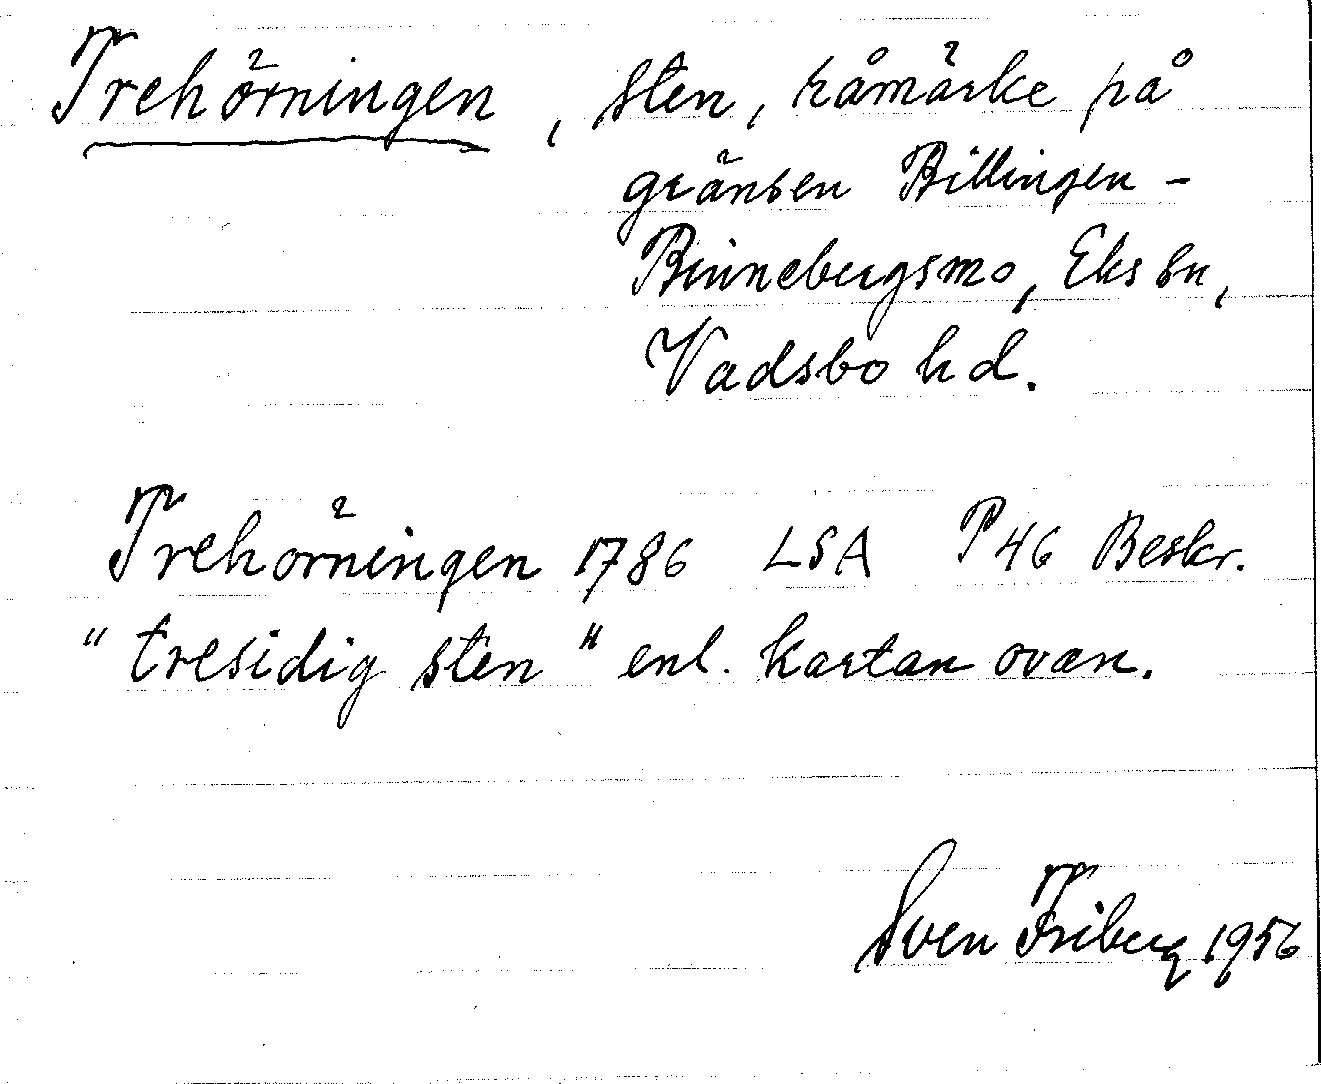 Trehörningen, sten, råmärke på
gränsen Billingen -
Binnebergsmo, Eks sn,
Vadsbo hd.
Trehörningen 1786 LSA P46 Beskr.
"tresidig sten" enl. kartan ovan.
Sven Friberg 1956